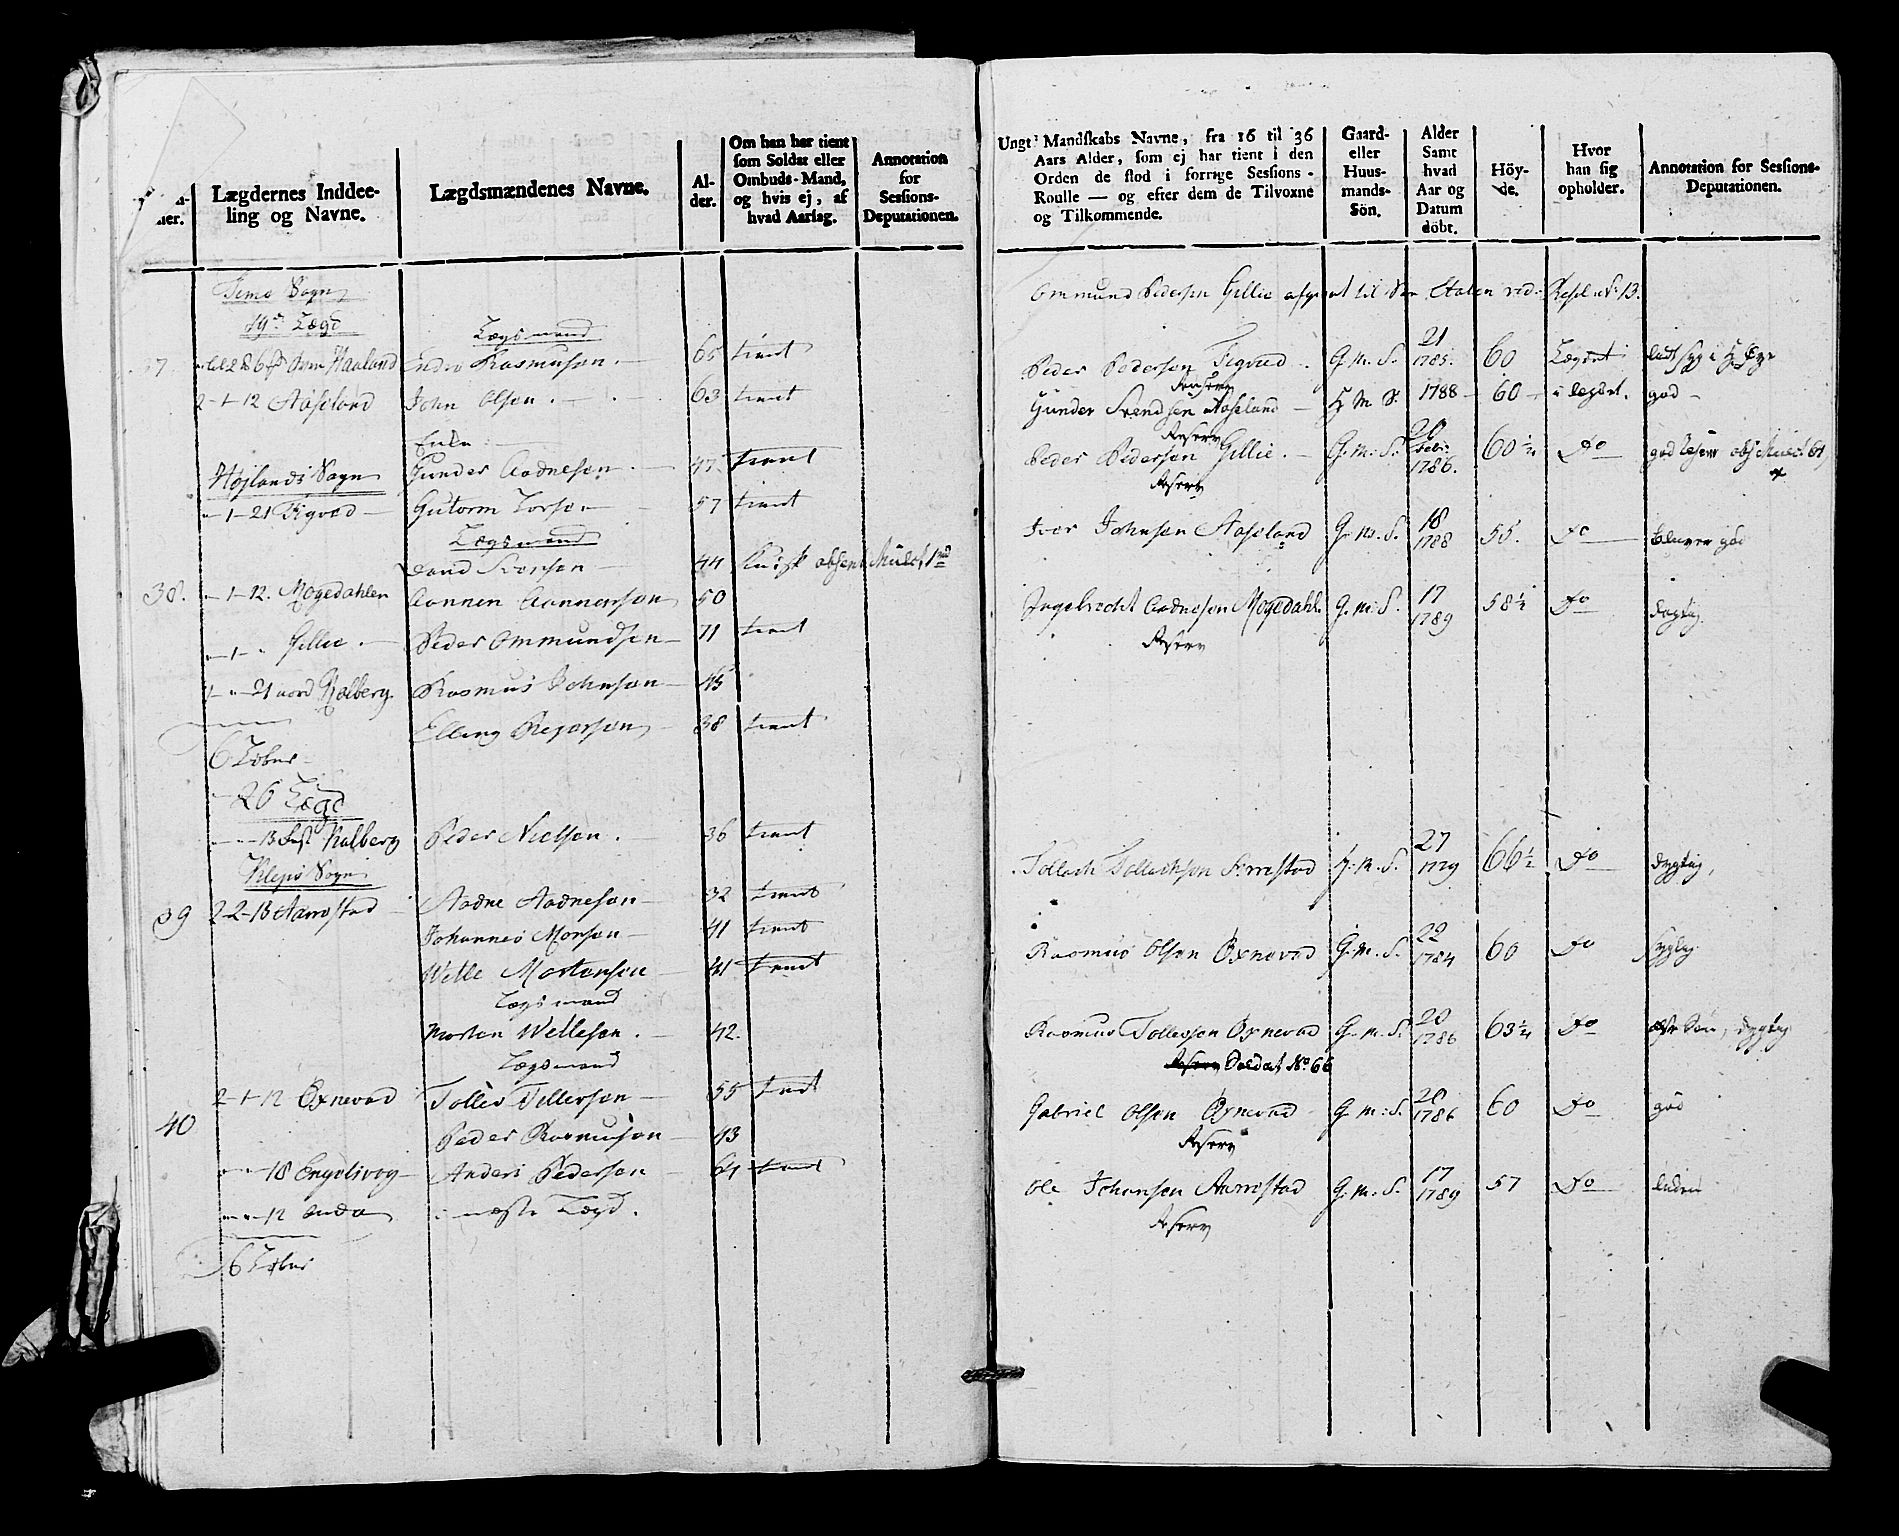 Lægdernes Inddee-
ling og Navne.
Lægdsmændenes Navne.
Al-
der.
Om han har tient
som Soldat eller
Ombuds-Mand,
og hvis ej, af
hvad Aarsag.
Annotation
for
Sessions-
Deputationen.
Time Sogn
19de Lægd
Lægsmand
Haaland Endre Rasmusen 65 tient
2-1-12 Aaseland John Olsen 63 tient
Enke
Højlands Sogn Gunder Aadnesøn 47 tient
1-21 Figved Gutorm Torsen 57 tient
Lægsmand
44 absent Mulct 1
38. 1-12. Møgedahlen Aannen Aannensøn 50
1 Gillie Peder Ommundsen 71 tient
21 nord Kalberg Rasmus Johnsøn 45
Elling 38 tient
6 Løber
26 Lægd
13 Kalberg Peder Nielsen 36 tient
Kleps Sogn
39 2-2-13 Aarrestad Aadne Aadneson 32 tient
Johannes Monsøn 41 tient
Welle Mortensøn 41 tient
Lægsmand
Morten Wellesøn 42
Lægsmand
40 2-1-12 Øxnevad Tolles Tollessøn 55 tient
Peder Rasmusøn 43
18 Engelsvog Anders Pedersøn 64 tient
12 i næste Lægd.
6 Løber
Ungt Mandskabs Navne, fra 16 til 36
Aars Alder, som ej har tient i den
Orden de stod i forrige Sessions-
Roulle — og efter dem de Tilvoxne
og Tilkommende.
Gaard-
eller
Huus-
mands-
Sön.
Alder
Samt
hvad
Aar og
Datum
döbt.
Höy-
de.
Hvor
han sig
opholder.
Annotation for Sessions-
Deputationen.
Ommund Pedersen Gillie til Søe Etaten ved Resol. No 13.
Peder Pedersen Figved G. M. S. 21 1785. 60 Lægdet
Reserv
Gunder Svendsen Aaseland H M S. 1788 60 i legdet. god
Reserv
Peder Pedersen Gillie G. M. S. 20 1786. 60½ Do god
Reserv
Iver Johnsen Aaseland G. M. S. 18 1788 55. Do bliver god
Ingebrecht Aadnesøn Møgedahl G. M. S. 17 1789 58½ Do dygtig.
Reserv
Tollach Tollachsen Arrestad G. M. S. 27 1779 66½ Do dygtig,
Rasmus Olsen Øxnevad G. M. S. 22 1784 60 Do sygelig
Rasmus Tollessen Øxnevad G. M. S. 20 1786 63½ Do dygtig
Reserv Soldat No 66
Gabriel Olsen Øxnevad G. M. S. 20 1786 60 Do god
Reserv
Ole Johansen Aarrestad G. M. S. 17 1789 57 Do liden
Reserv